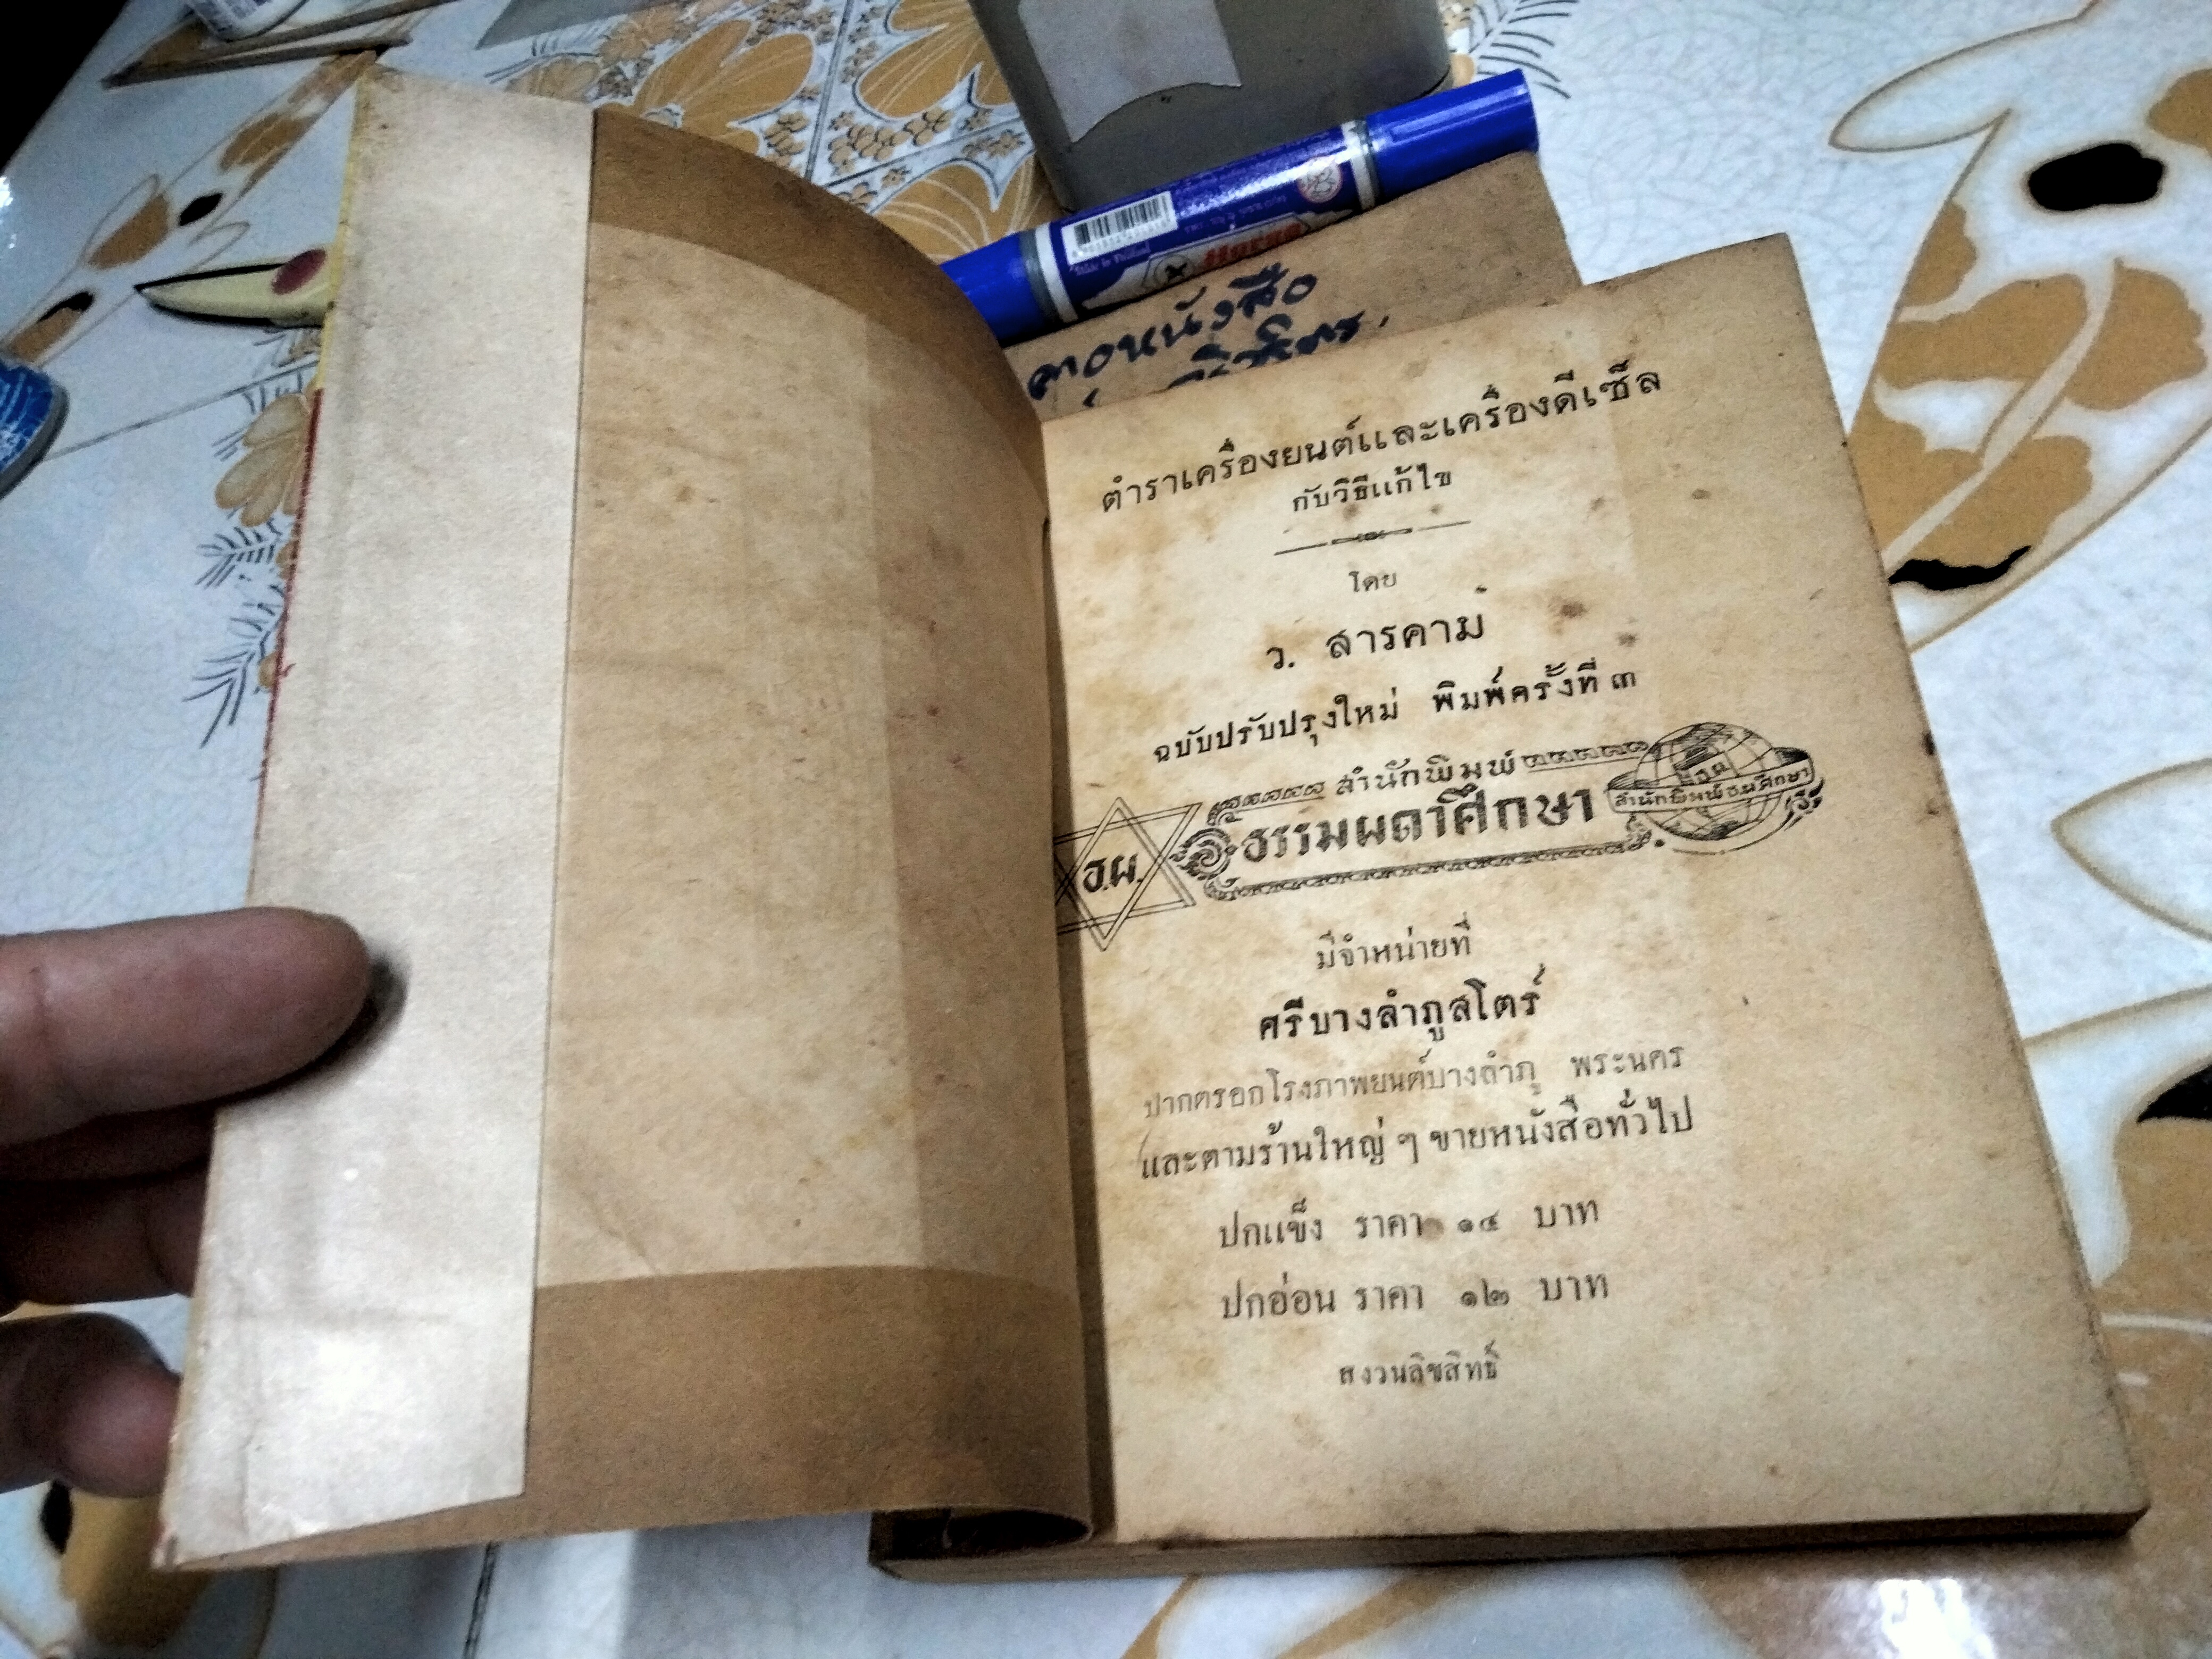 Horse
หนังสือ
ตำราเครื่องยนต์และเครื่องดีเซ็ล
กับวิธีแก้ไข
โดย
ว. สารคาม
ฉบับปรับปรุงใหม่ พิมพ์ครั้งที่ ๓
สำนักพิมพ์
ธรรมผดาศึกษา
ธ.ผ.
มีจำหน่ายที่
ศรีบางลำภูสโตร์
ปากตรอกโรงภาพยนต์บางลำภู พระนคร
และตามร้านใหญ่ ๆ ขายหนังสือทั่วไป
ปกแข็ง ราคา ๑๔ บาท
ปกอ่อน ราคา ๑๒ บาท
สงวนลิขสิทธิ์